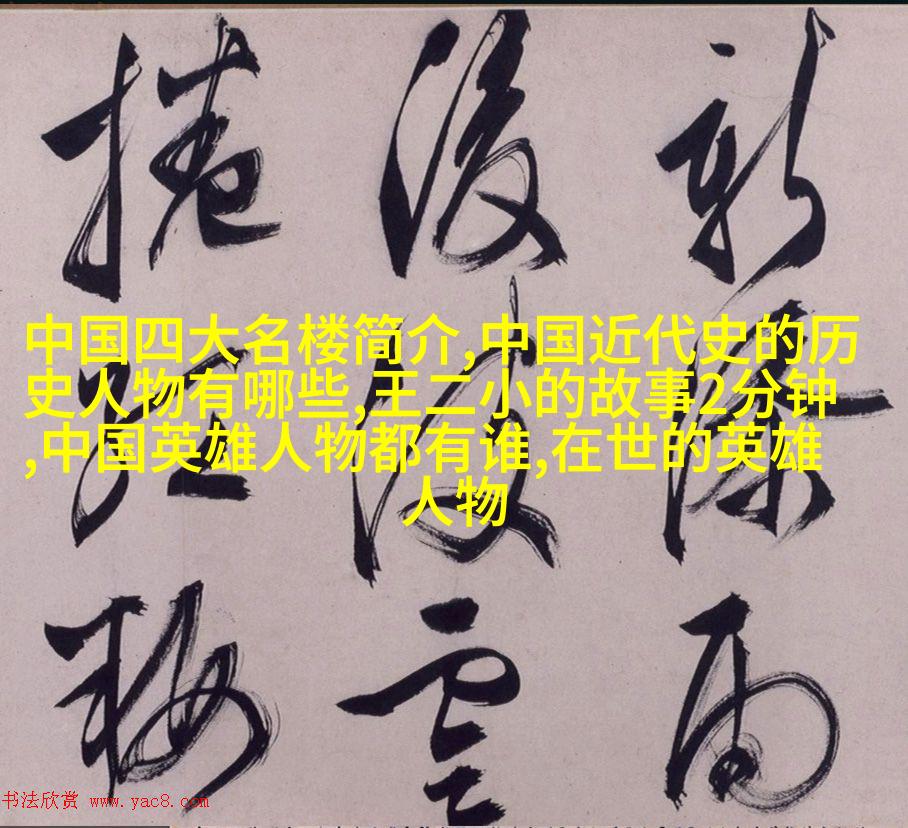 新 雨
後 雲
捲 梅
中国四大名楼简介,中国近代史的历
史人物有哪些,王二小的故事2分钟
,中国英雄人物都有谁,在世的英雄
人物
书法欣赏 www.yac8.com